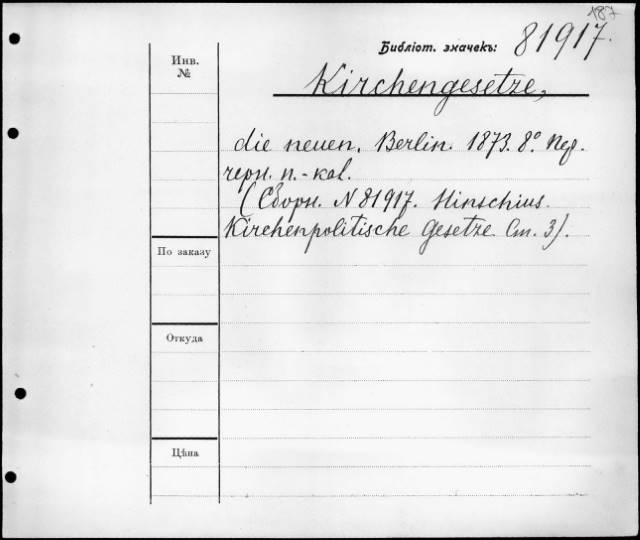 187
Библіот. значекъ: 81917.
Инв.
№
Kirchengesetze,
die neuen. Berlin. 1873. 8° Пер.
черн. п.-кол.
(Сборн. N 81917. Hinschius.
Kirchenpolitische Gesetze. Ст. 3).
По заказу
Откуда
Цѣна